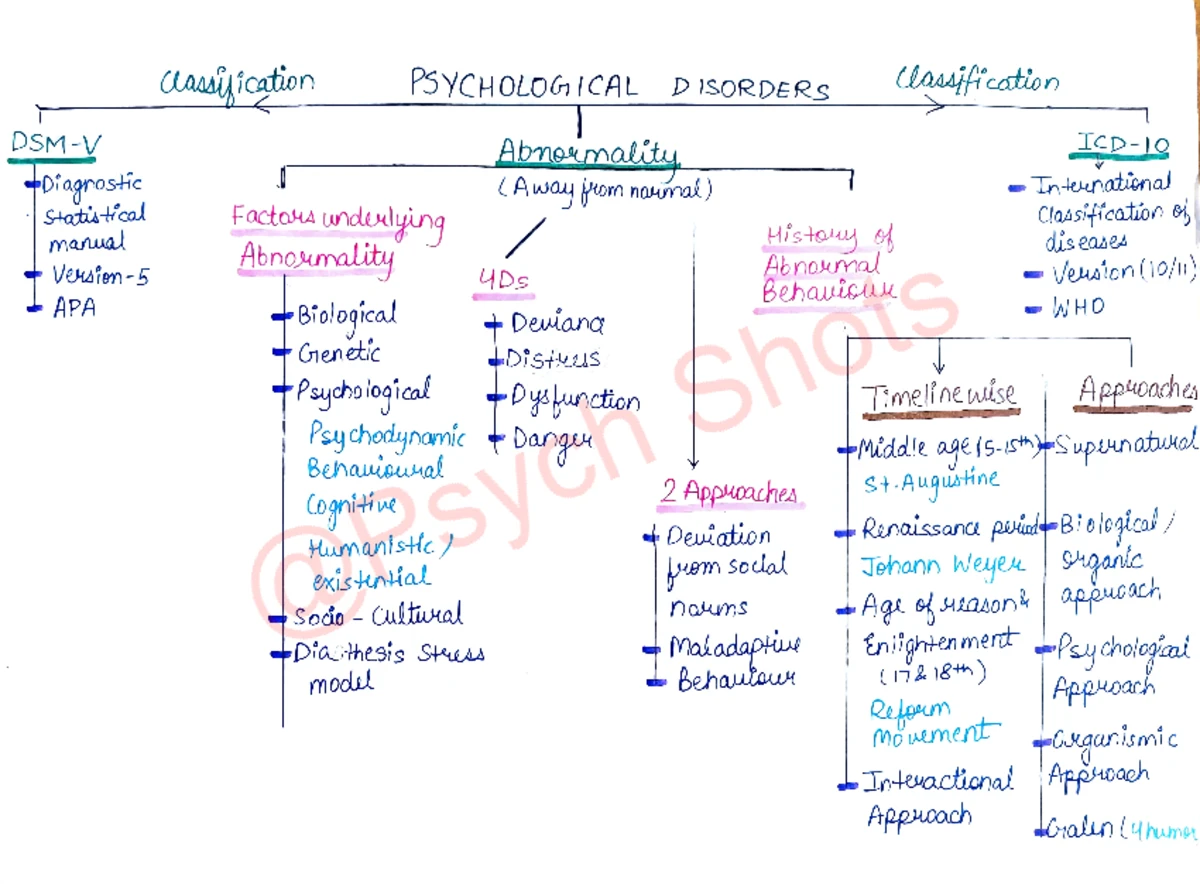 PSYCHOLOGICAL DISORDERS
Classification
Classification
DSM-V
Diagnostic
Statistical
manual
Version-5
APA
Abnormality
(Away from normal)
Factors underlying
Abnormality
Biological
Genetic
Psychological
Psychodynamic
Behavioural
Cognitive
Humanistic/
existential
Socio-Cultural
Diathesis Stress
model
4Ds
Devianc
Distress
Dysfunction
Danger
2 Approaches
Deviation
from social
norms
Maladaptive
Behaviour
History of
Abnormal
Behaviour
Timelinewise
Middle age (5-15th)
St. Augustine
Renaissance period
Johann Weyer
Age of reason &
Enlightenment
(17 & 18th)
Reform
Movement
Interactional
Approach
Approaches
Supernatural
Biological/
organic
approach
Psychological
Approach
Organismic
Approach
Galen (4 humor
ICD-10
International
Classification of
diseases
Version (10/11)
WHO
@Psych Shots